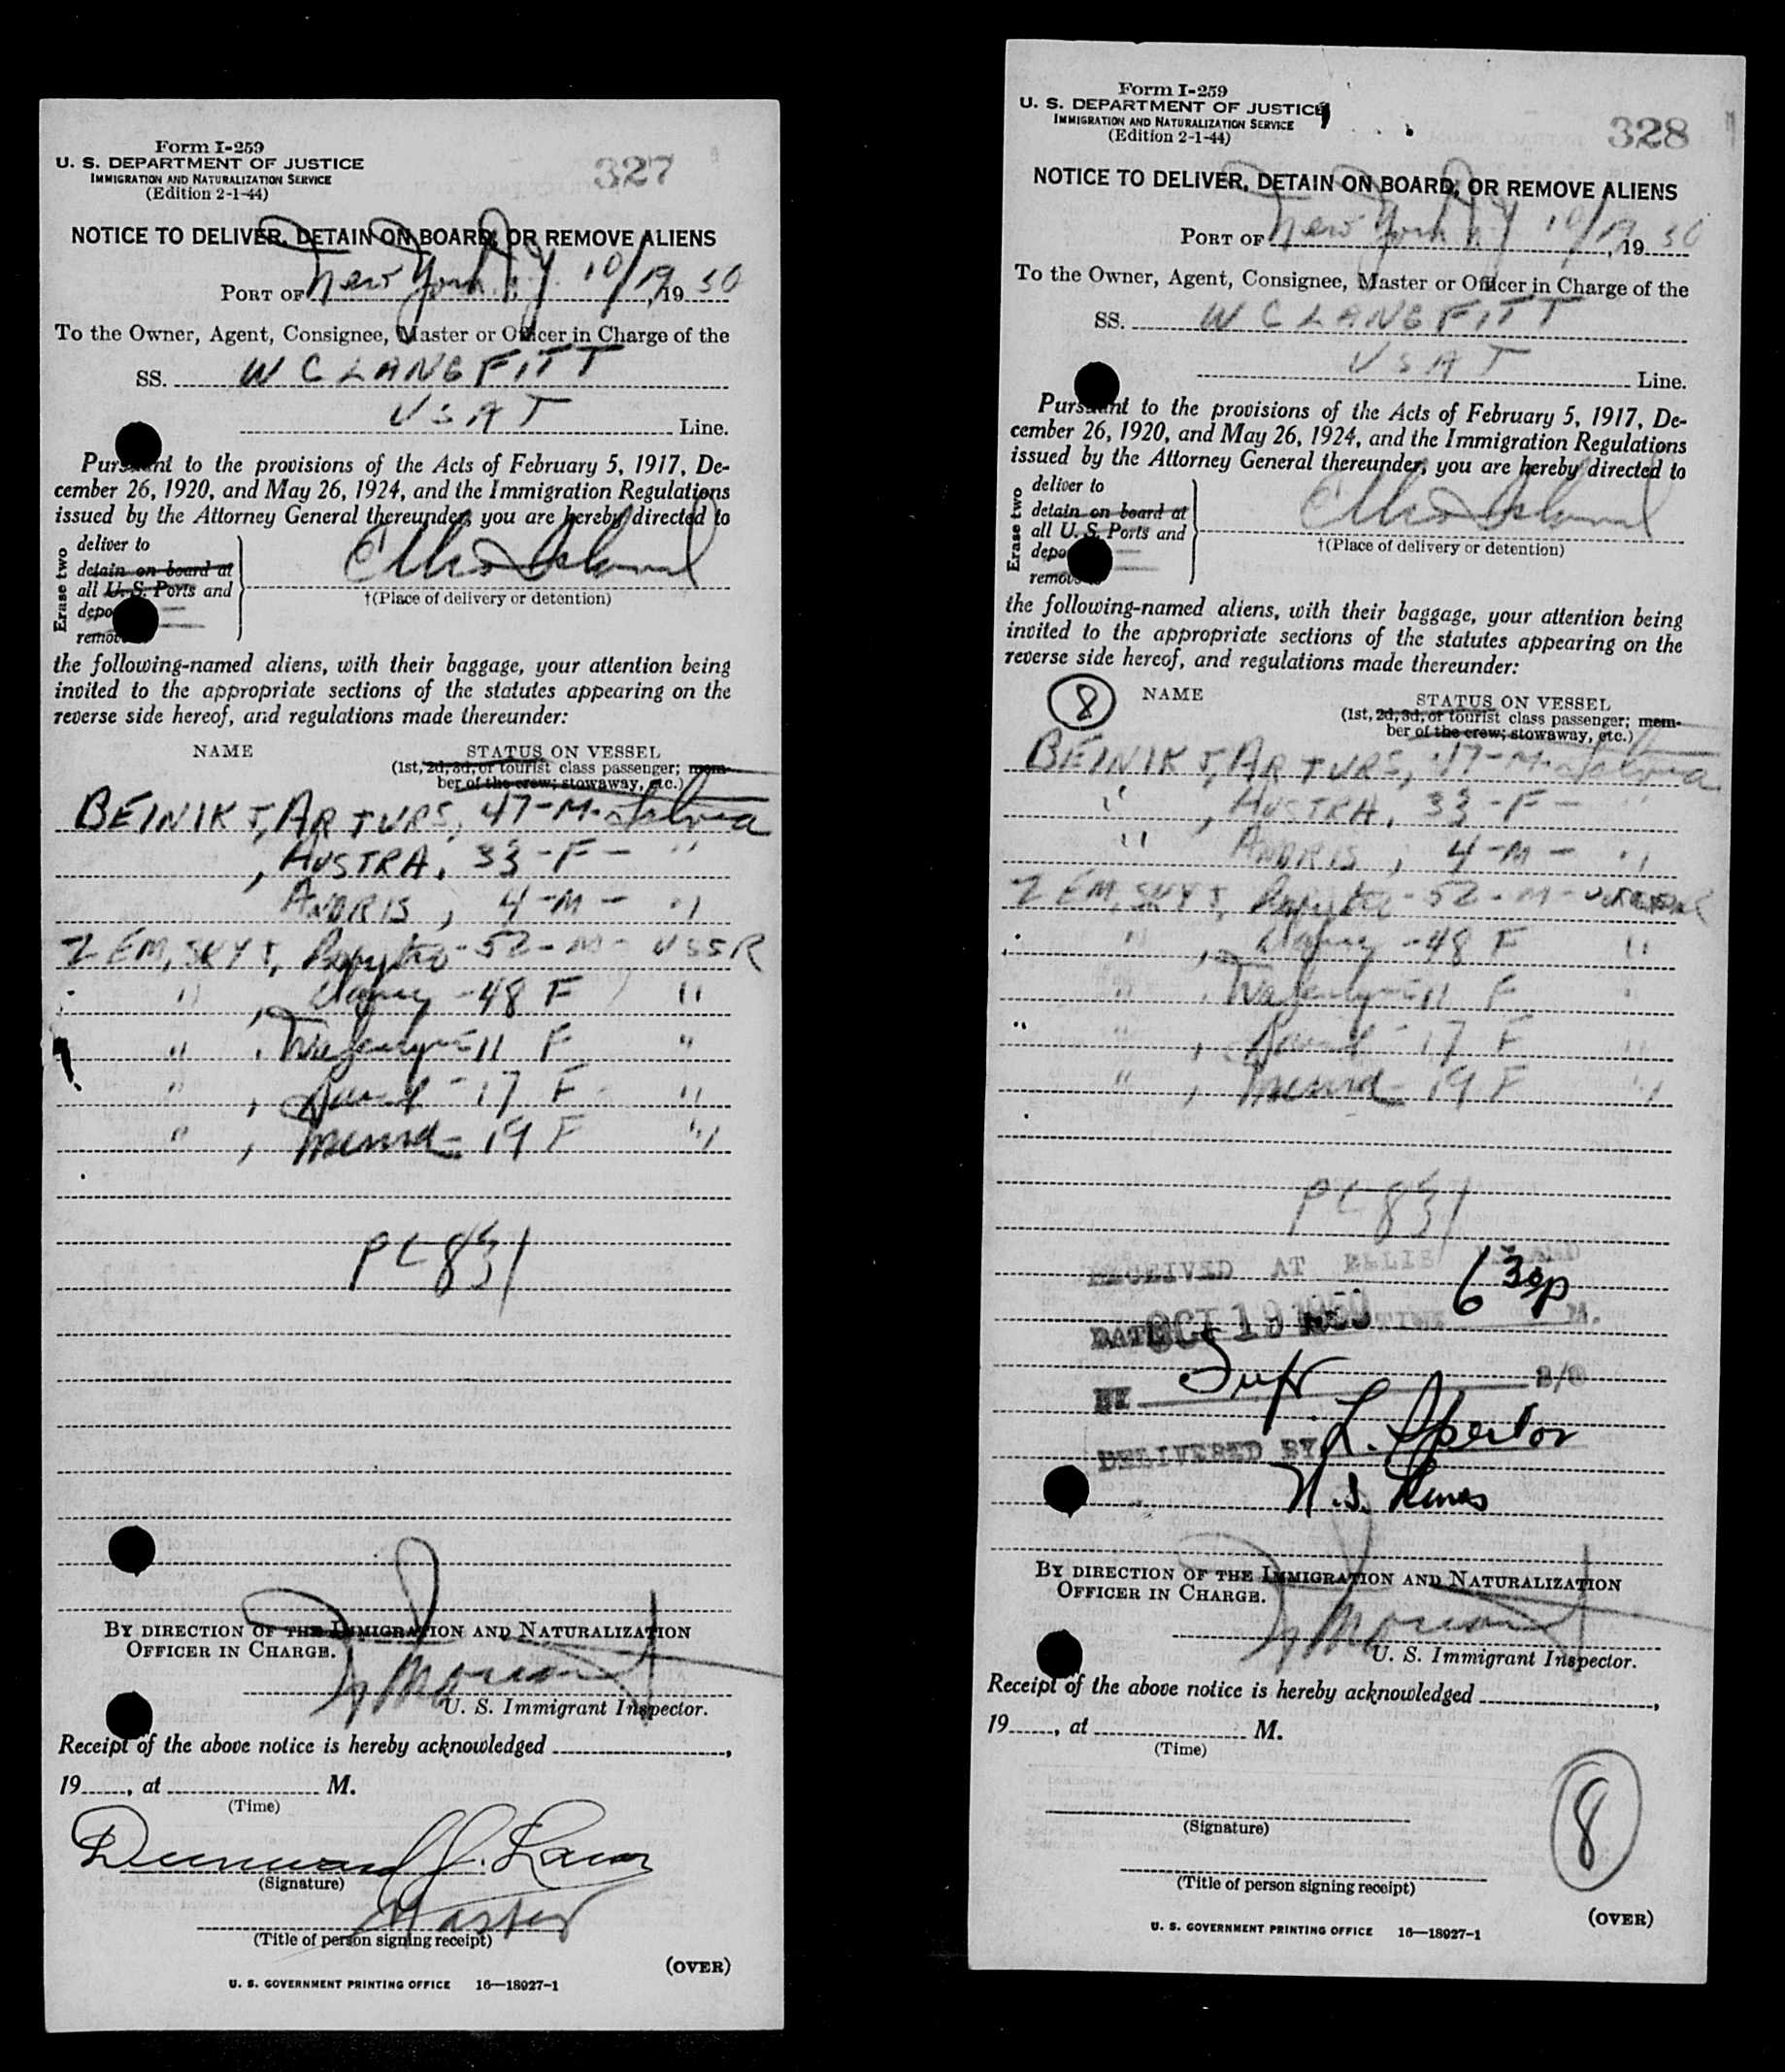 Form I-259
U. S. DEPARTMENT OF JUSTICE
IMMIGRATION AND NATURALIZATION SERVICE
(Edition 2-1-44)
327
NOTICE TO DELIVER, DETAIN ON BOARD, OR REMOVE ALIENS
PORT OF New York N Y 10/19, 1950
To the Owner, Agent, Consignee, Master or Officer in Charge of the
SS. W C LANGFITT
USAT Line.
Pursuant to the provisions of the Acts of February 5, 1917, De-
cember 26, 1920, and May 26, 1924, and the Immigration Regulations
issued by the Attorney General thereunder, you are hereby directed to
Erase two
deliver to
detain on board at
all U. S. Ports and
Ellis Island
†(Place of delivery or detention)
the following-named aliens, with their baggage, your attention being
invited to the appropriate sections of the statutes appearing on the
reverse side hereof, and regulations made thereunder:
NAME STATUS ON VESSEL
(1st, 2d, 3d, or tourist class passenger; mem-
ber of the crew; stowaway, etc.)
BEINIKS, ARTURS, 47-M- Latvia
, AUSTRA, 33-F- "
ANDRIS, 4-M- "
ZEMISKYJ, -52-M- USSR
" , -48 F "
" , -11 F "
" , -17 F "
" , -19 F "
PL 831
BY DIRECTION OF THE IMMIGRATION AND NATURALIZATION
OFFICER IN CHARGE.
U. S. Immigrant Inspector.
Receipt of the above notice is hereby acknowledged
19, at M.
(Time)
(Signature)
Master
(Title of person signing receipt)
(OVER)
U. S. GOVERNMENT PRINTING OFFICE 16—18927-1
Form I-259
U. S. DEPARTMENT OF JUSTICE
IMMIGRATION AND NATURALIZATION SERVICE
(Edition 2-1-44)
328
NOTICE TO DELIVER, DETAIN ON BOARD, OR REMOVE ALIENS
PORT OF New York N Y 10/19, 1950
To the Owner, Agent, Consignee, Master or Officer in Charge of the
SS. W C LANGFITT
USAT Line.
Pursuant to the provisions of the Acts of February 5, 1917, De-
cember 26, 1920, and May 26, 1924, and the Immigration Regulations
issued by the Attorney General thereunder, you are hereby directed to
Erase two
deliver to
detain on board at
all U. S. Ports and
Ellis Island
†(Place of delivery or detention)
the following-named aliens, with their baggage, your attention being
invited to the appropriate sections of the statutes appearing on the
reverse side hereof, and regulations made thereunder:
8 NAME STATUS ON VESSEL
(1st, 2d, 3d, or tourist class passenger; mem-
ber of the crew; stowaway, etc.)
BEINIKS, ARTURS, 47-M- Latvia
" , AUSTRA, 33-F- "
" ANDRIS, 4-M- "
ZEMISKYJ, -52-M-
" , -48 F "
" , -11 F "
" , -17 F "
" , -19 F "
PL 831
RECEIVED AT ELLIS ISLAND
DATE OCT 19 1950 TIME 6 30p M.
BY
DELIVERED BY L. Spector
BY DIRECTION OF THE IMMIGRATION AND NATURALIZATION
OFFICER IN CHARGE.
U. S. Immigrant Inspector.
Receipt of the above notice is hereby acknowledged
19, at M.
(Time)
(Signature)
8
(Title of person signing receipt)
(OVER)
U. S. GOVERNMENT PRINTING OFFICE 16—18927-1